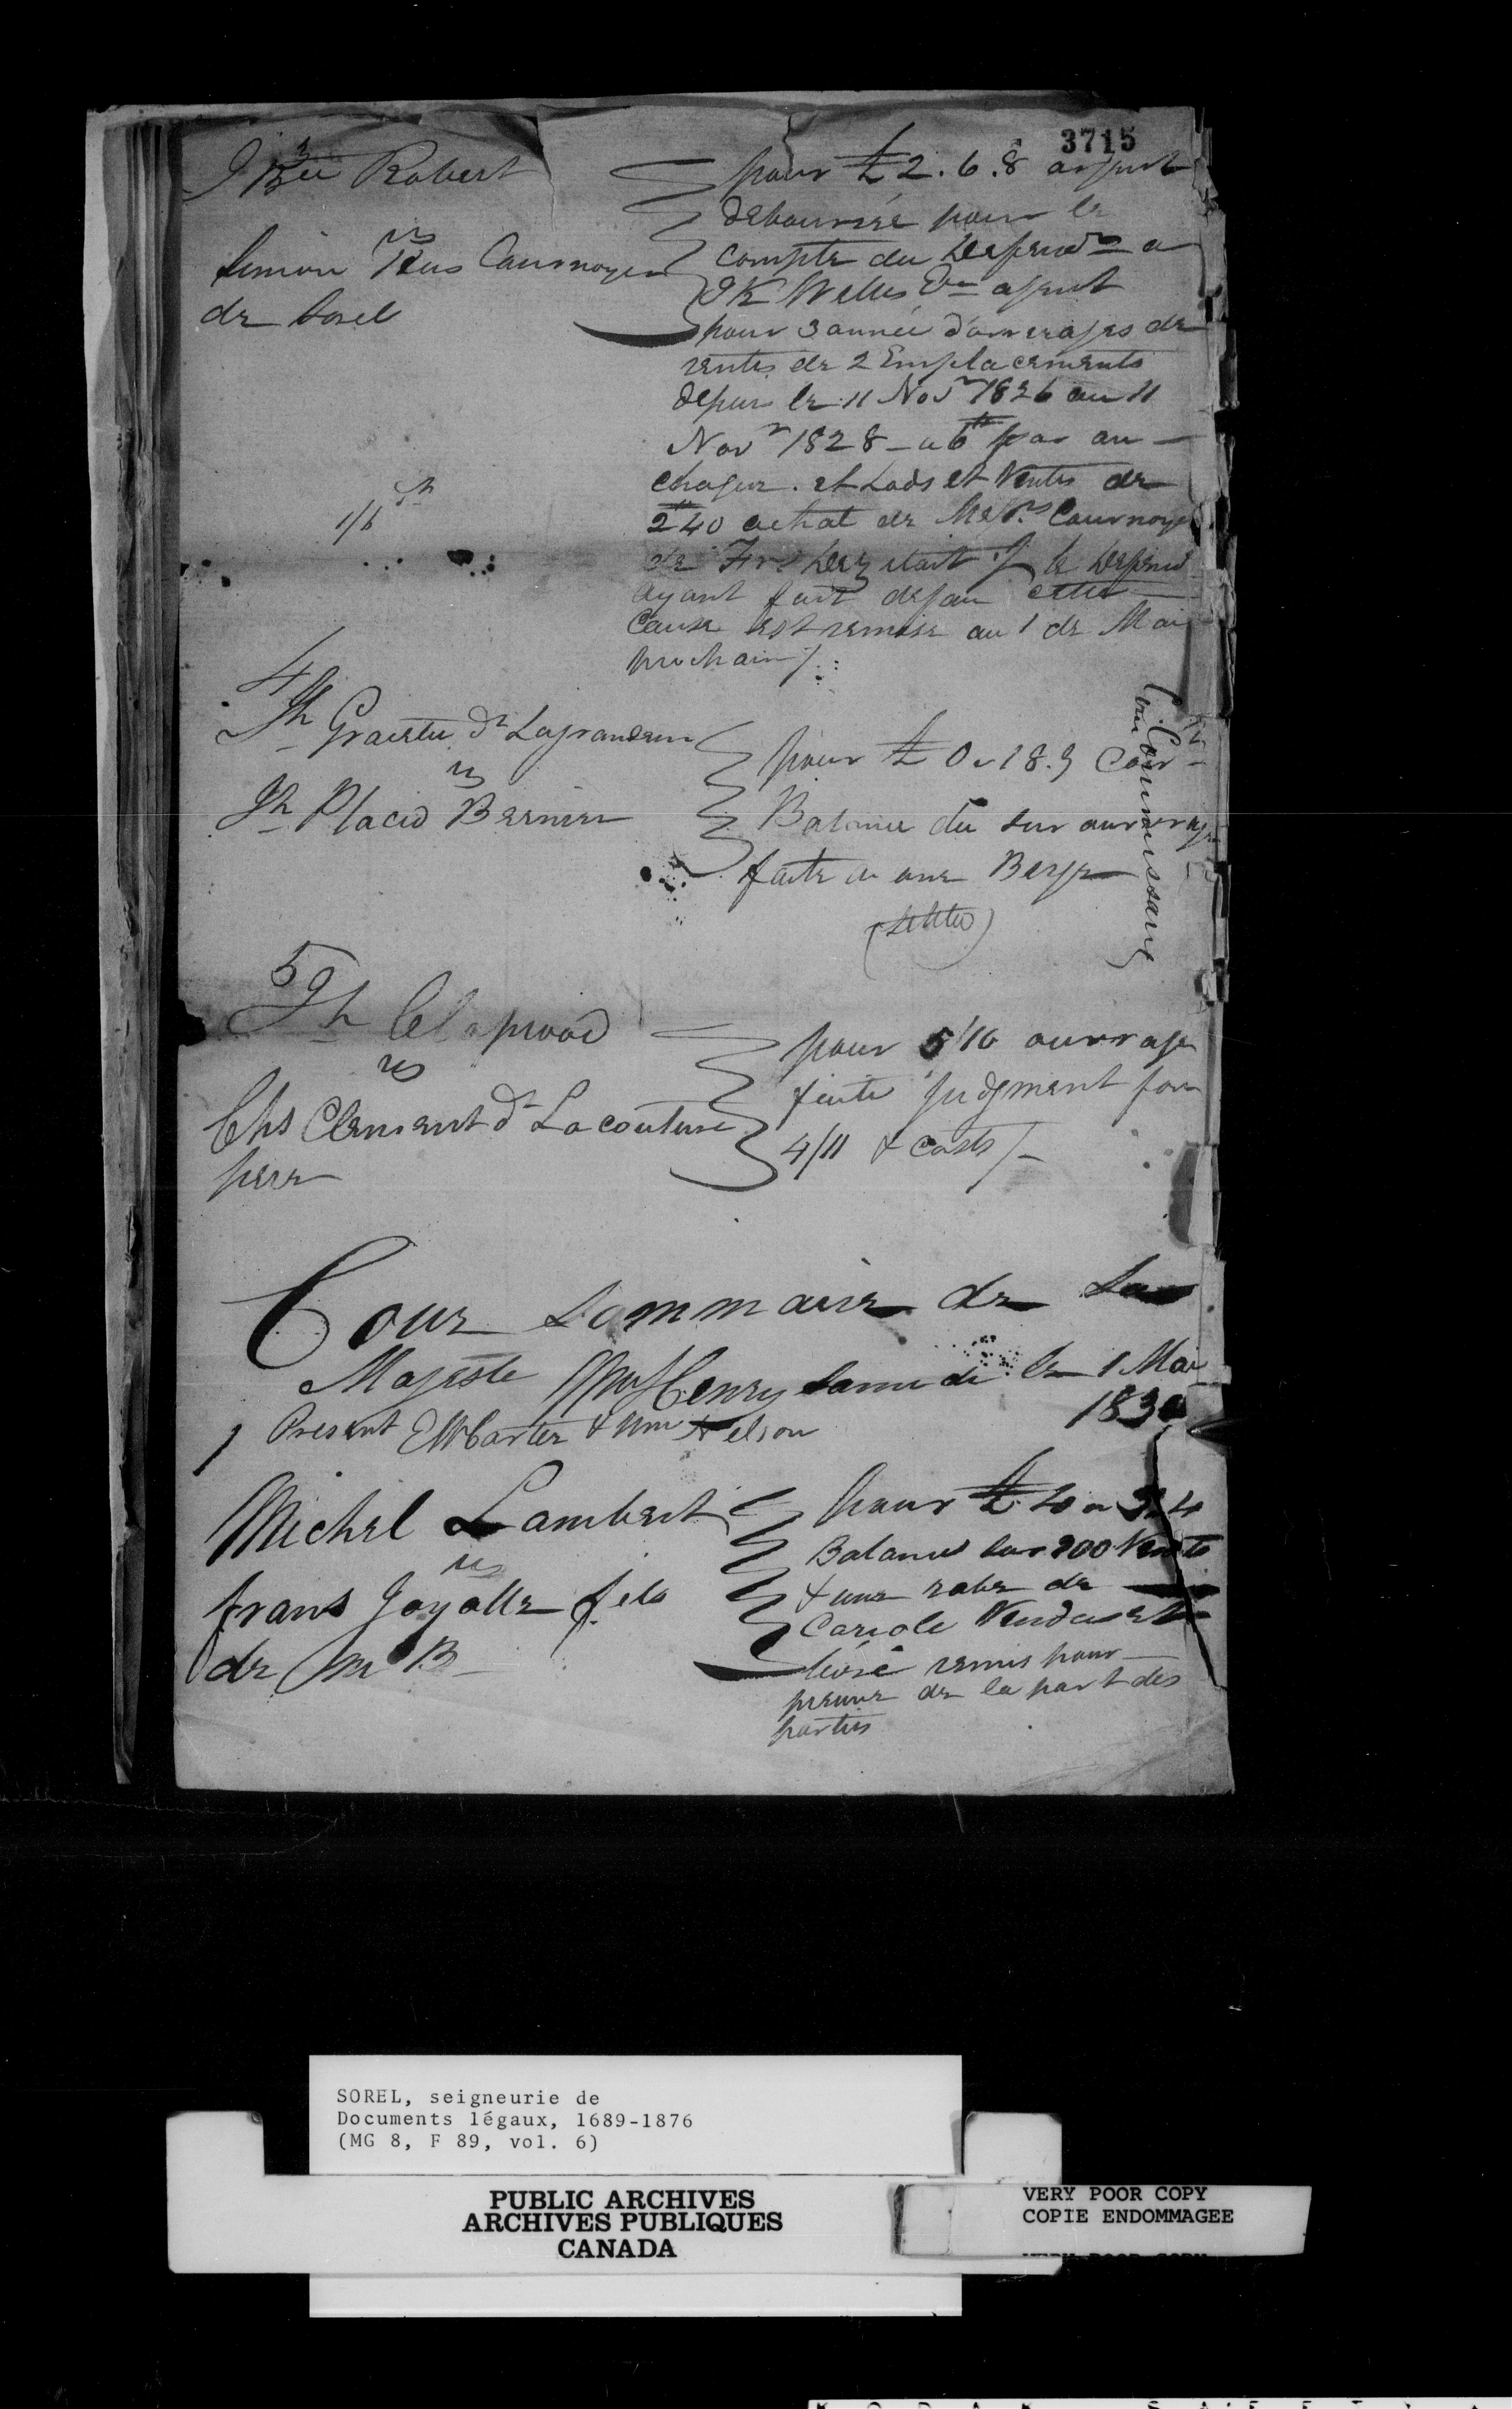 3715
3
J Bte Robert
vs
Simion Hus Cournoyer
de Sorel
1/6
pour £2.6.8 argent
deboursée pour le
compte du Defendr a
J K Welles Ecr agent
pour 3 année d'arrerages de
rentes de 2 Emplacements
depuis le 11 Novr 1826 au 11
Novr 1828 - a 6 par an
chaque. et Lods et Ventes de
240 achat de Cournoyer
le Defend
ayant fait defau cette
Cause est remise au 1 de Mai
prochain /.
4
Jh dt Lagrandeur
vs
Jh Placid Bernier
pour £0.18.9 Cour
Balance dû sur ouvrage
faite a une Berge
(settled)
Connoissant
5
Jh Clapwood
vs
Chs Clement dt Lacouture
pere
pour 5/10 ouvrage
faite judgment for
4/11 & costs /-
Cour Sommaire de Sa
Majesté Wm Henry Samedi le 1 Mai
1830
1 Present EW Carter & Wm Nelson
Michel Lambert
vs
frans Joyalle fils
de M B
pour £
Balance sur 200
& une robe de
Cariole Vendu et
livré remis pour
preuve de la part des
parties
SOREL, seigneurie de
Documents légaux, 1689-1876
(MG 8, F 89, vol. 6)
PUBLIC ARCHIVES
ARCHIVES PUBLIQUES
CANADA
VERY POOR COPY
COPIE ENDOMMAGEE
VERY POOR COPY